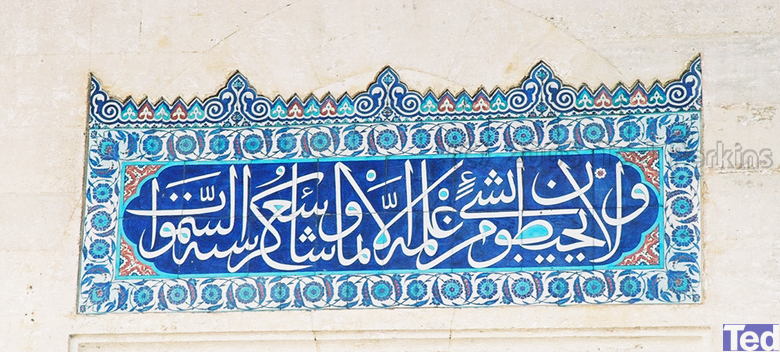 ولا يحيطون بشيء من علمه إلا بما شاء وسع كرسيه السموات
erkins
Ted